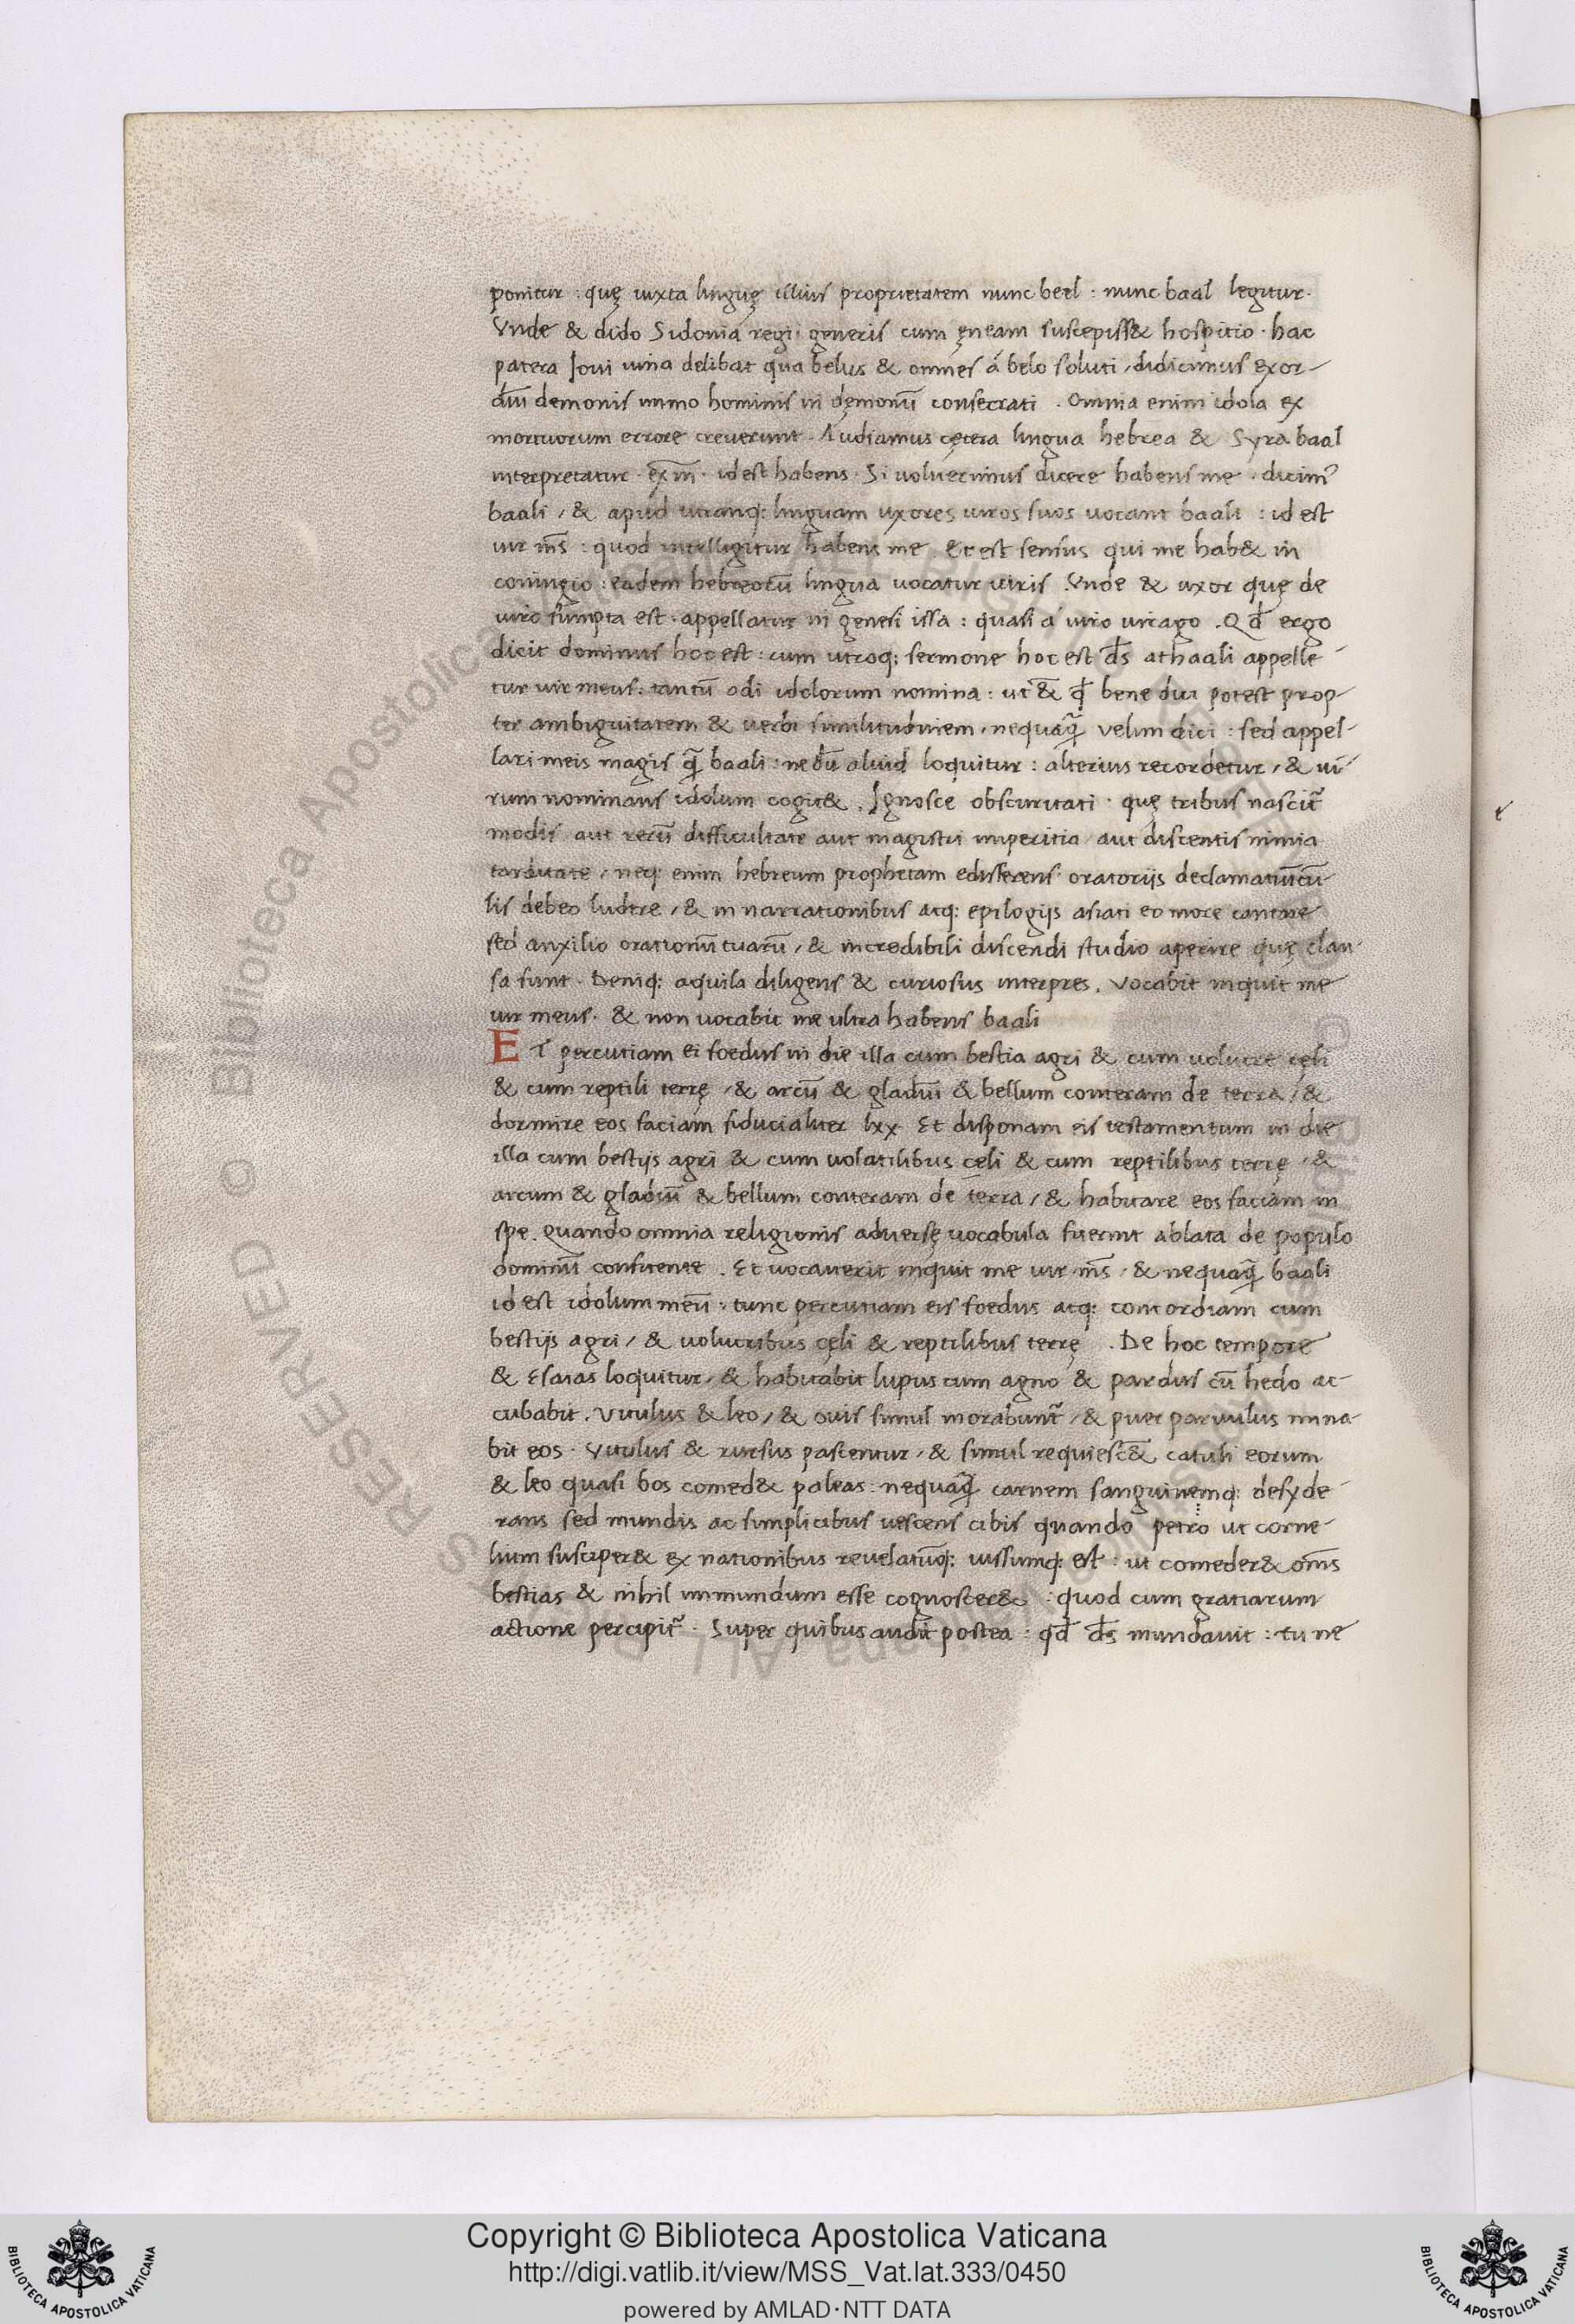 ponitur : quę iuxta linguę illius proprietatem nunc beel : nunc baal legitur.
Vnde & dido Sidonia regii generis cum ęneam suscepiss& hospitio . hac
patera Ioui uina delibat qua belus & omnes á belo soluti, didicimus exor-
diū demonis immo hominis in dęmonū consecrati . Omnia enim idola ex
mortuorum errore creuerunt . Audiamus cętera lingua hebrea & Syra baal
interpretatur . id est habens . Si voluerimus dicere habens me . dicim᾽
baali, & apud utranq: linguam uxores uiros suos uocant baali : id est
uir m̄s : quod intelligitur habens me Et est sensus qui me hab& in
coniugio : eadem hebreorū lingua uocatur uiris . Vnde & uxor quę de
uiro sumpta est . appellatur in genesi issa : quasi á uiro uirago . Qd̄ ergo
dicit dominus hoc est : cum utroq; sermone hoc est d̄s athaali appelle-
tur uir meus : tantū odi idolorum nomina : ut & qd̄ bene dici potest prop-
ter ambiguitatem & uerbi similitudinem, nequaq̄ velim dici : sed appel-
lari meis magis q̄ baali : ne dū aliud loquitur : alterius recordetur, & ui-
rum nominans idolum cogit& . Ignosce obscuritati . quę tribus nascit᷑
modis aut rerū difficultate aut magistri imperitia aut discentis nimia
tarditate, neq: enim hebreum prophetam edisserens oratorijs declamatiūcu-
lis debeo ludere, & in narrationibus atq: epilogijs asiati eo more cantare
sed auxilio orationū tuarū, & incredibili discendi studio aperire quę clau-
sa sunt . Deniq: aquila diligens & curiosus interpres . Vocabit inquit me
uir meus . & non uocabit me ultra habens baali
ET percutiam ei foedus in die illa cum bestia agri & cum uolucre cęli
& cum reptili terrę, & arcū & gladiū & bellum conteram de terra, &
dormire eos faciam fiducialiter lxx Et disponam eis testamentum in die
illa cum bestijs agri & cum uolatilibus cęli & cum reptilibus terrę, &
arcum & gladiū & bellum conteram de terra, & habitare eos faciam in
spe . Quando omnia religionis aduersę uocabula fuerint ablata de populo
dominū confitente . Et uocauerit inquit me uir m̄s, & nequaq̄ baali
id est idolum meū : tunc percutiam eis foedus atq: concordiam cum
bestijs agri, & uolucribus cęli & reptilibus terrę . De hoc tempore
& Esaias loquitur, & habitabit lupus cum agno & pardus cū hedo ac-
cubabit . Vitulus & leo, & ouis simul morabunt᷑, & puer paruulus mina-
bit eos . Vitulus & rursus pascentur, & simul requiesc& catuli eorum
& leo quasi bos comed& paleas : nequaq̄ carnem sanguinemq: desyde-
rans sed mundis ac simplicibus uescens cibis quando petro ut corne-
lium susciper& ex nationibus reuelatūq: iussumq: est : ut comeder& om̄s
bestias & nihil immundum esse cognoscer& : quod cum gratiarum
actione percipit᷑ . Super quibus audit postea : qd̄ d̄s mundauit : tu ne
Copyright © Biblioteca Apostolica Vaticana
http://digi.vatlib.it/view/MSS_Vat.lat.333/0450
powered by AMLAD·NTT DATA
BIBLIOTECA APOSTOLICA VATICANA
BIBLIOTECA APOSTOLICA VATICANA